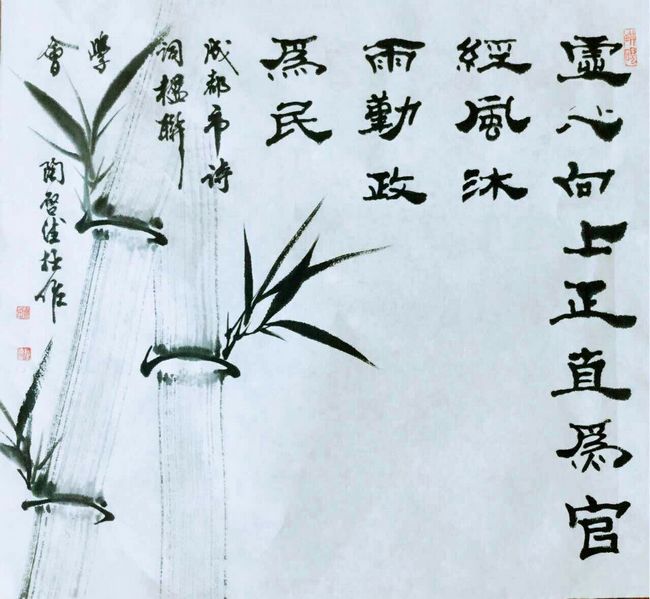 虛心向上正直爲官
經風沐
雨勤政
爲民
成都市詩
詞楹聯
學
會
陶啓拙作